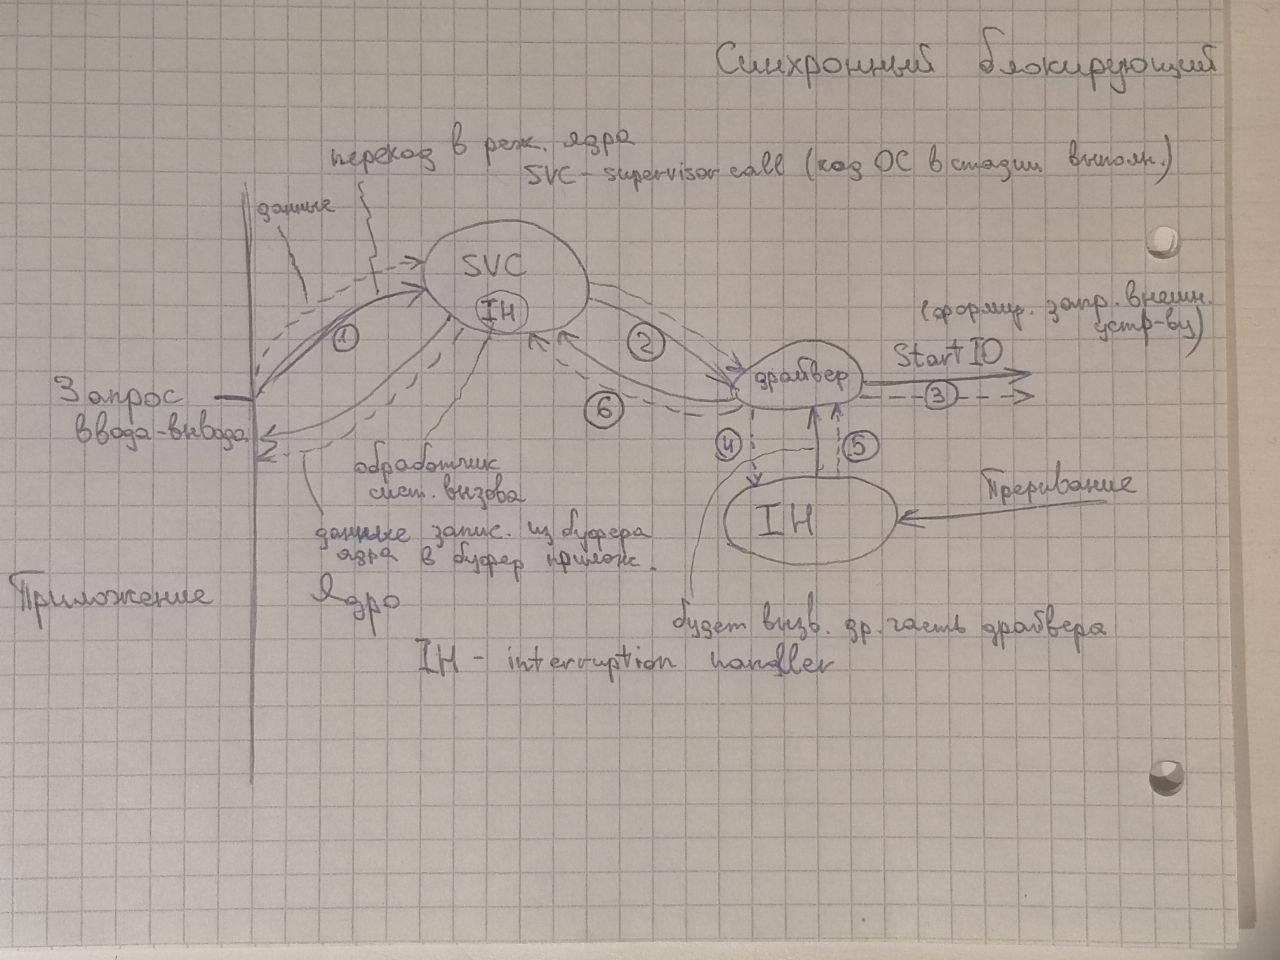 Синхронный блокирующий
переход в реж. ядра
SVC - supervisor call (код ОС в стадии выполн.)
данные
SVC
IH
1
2
(формир. запр. внешн.
устр-ву)
Start IO
драйвер
3
Запрос
ввода-вывода
6
4
5
обработчик
сист. вызова
Прерывание
IH
данные запис. из буфера
ядра в буфер прилож.
Приложение
Ядро
будет вызв. др. часть драйвера
IH - interruption handler